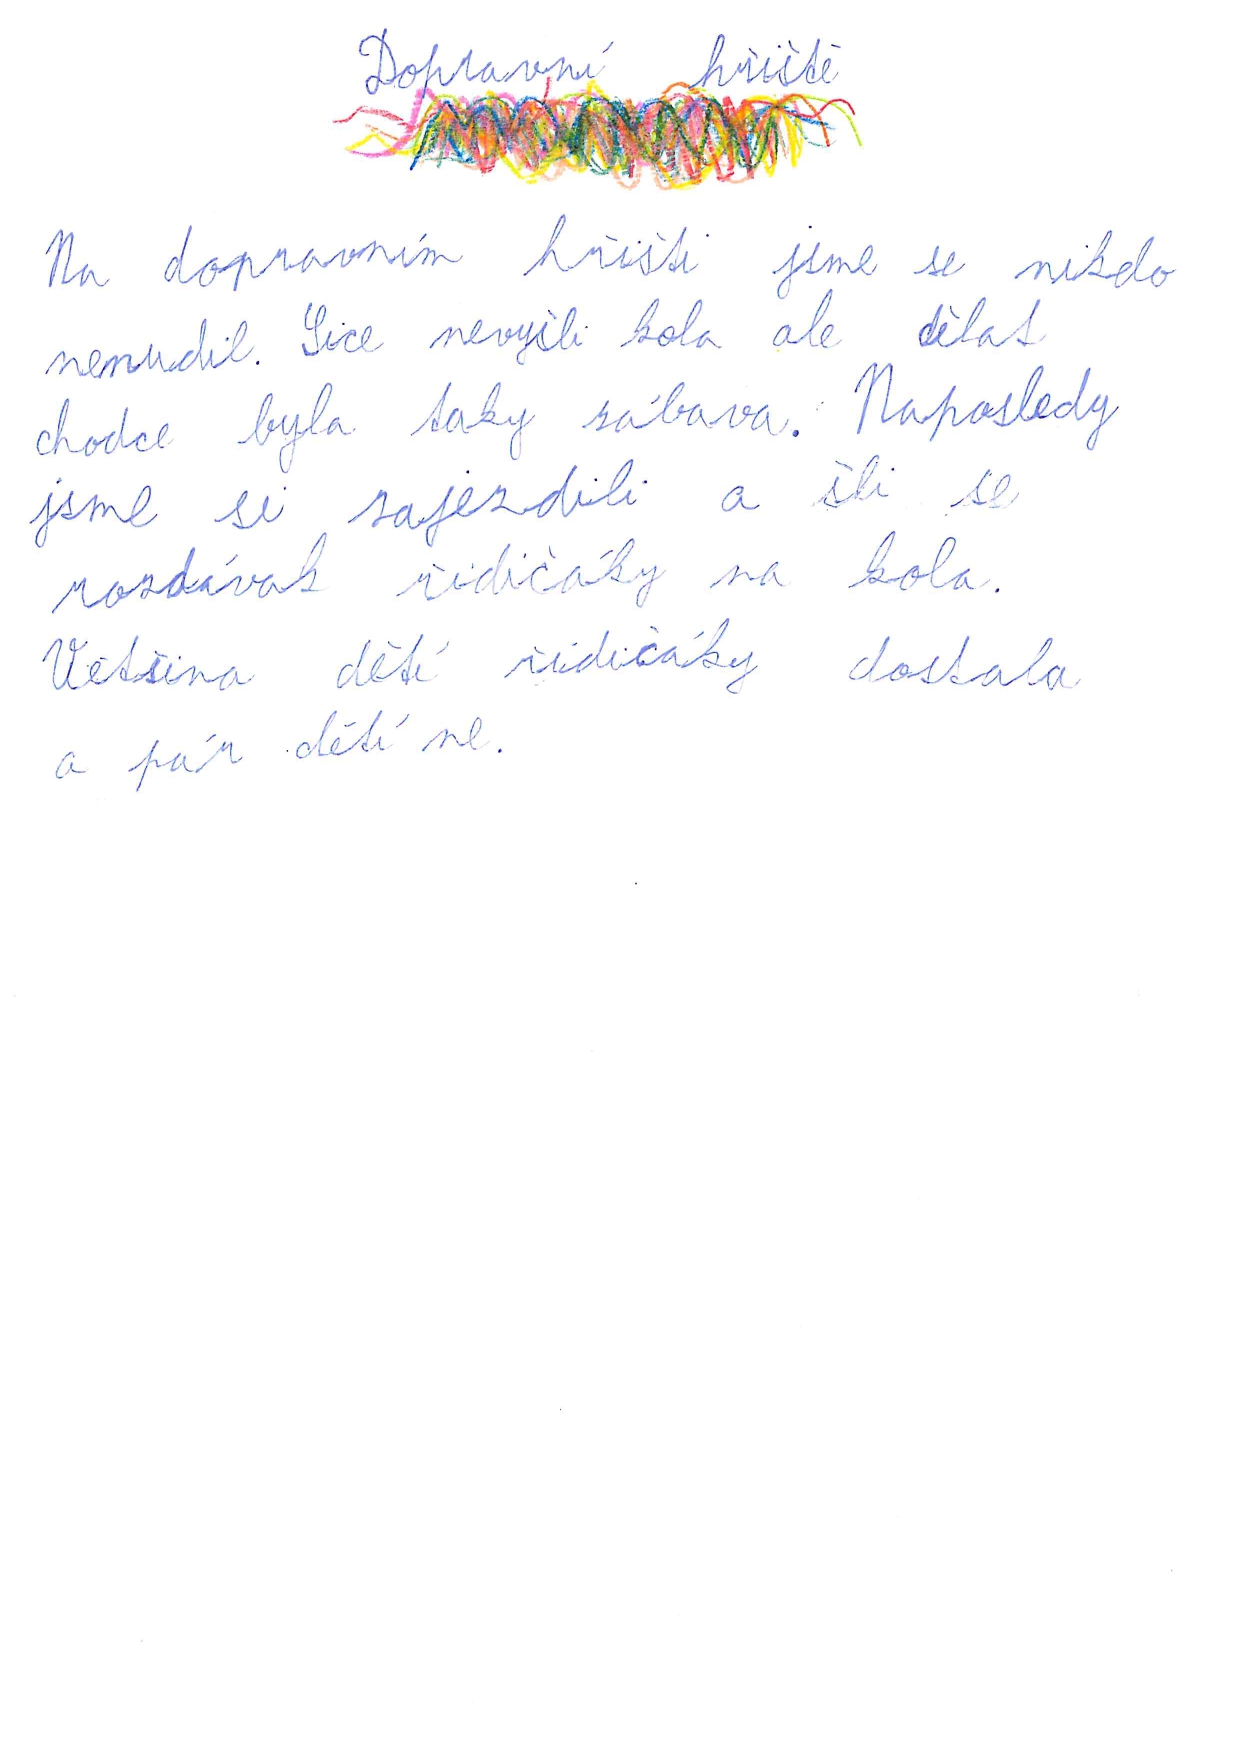 Dopravní hřiště
Na dopravním hřišti jsme se nikdo
nenudil. Sice nevyšli kola ale dělat
chodce byla taky zábava. Naposledy
jsme si zajezdili a šli se
rozdávat řidičáky na kola.
Většina dětí řidičáky dostala
a pár dětí ne.